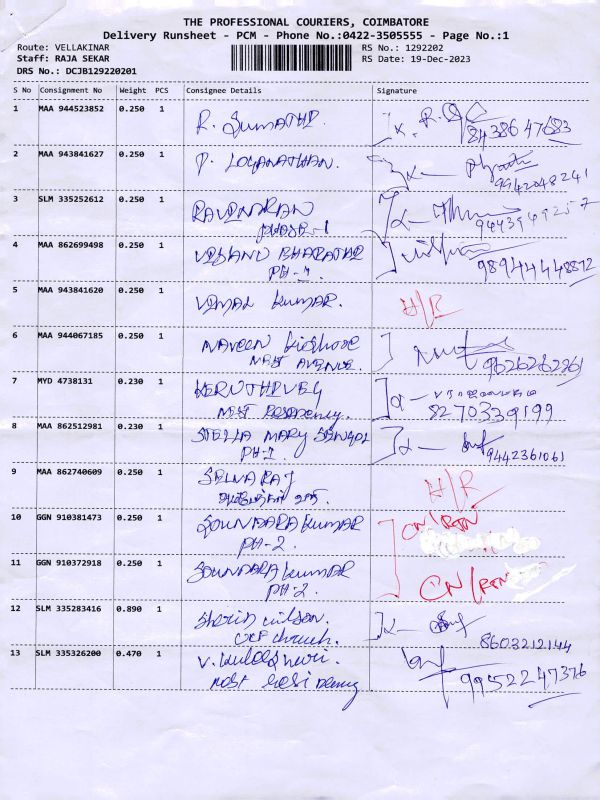 THE PROFESSIONAL COURIERS, COIMBATORE
Delivery Runsheet - PCM - Phone No.:0422-3505555 - Page No.:1
Route: VELLAKINAR RS No.: 1292202
Staff: RAJA SEKAR RS Date: 19-Dec-2023
DRS No.: DCJB129220201
S No Consignment No Weight PCS Consignee Details Signature
1 MAA 944523852 0.250 1 R. Sumathi. 8438647683
2 MAA 943841627 0.250 1 P. LOGANATHAN. 9942048241
3 SLM 335252612 0.250 1 RAVENDRAN 9443949257
PHASE-1
4 MAA 862699498 0.250 1 VISHNU BHARATHI 98944448872
PH-1
5 MAA 943841620 0.250 1 VIMAL Kumar. H/R
6 MAA 944067185 0.250 1 NAVEEN Kishore 9626262861
NEST AVENUE.
7 MYD 4738131 0.230 1 8270339199
NEST Residency.
8 MAA 862512981 0.230 1 STELLA MARY 9442361061
PH-1
9 MAA 862740609 0.250 1 SELVARAJ H/R
10 GGN 910381473 0.250 1 SOUNDARA Kumar CN/RTN
PH-2
11 GGN 910372918 0.250 1 SOUNDARA Kumar CN/RTN
PH-2
12 SLM 335283416 0.890 1 Sherin wilson. 8603212144
church.
13 SLM 335326200 0.470 1 V. 9952247376
NEST Residency